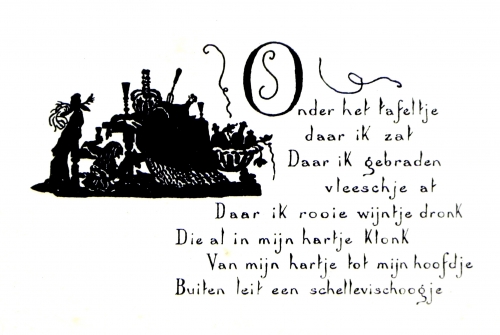 Onder het tafeltje
daar ik zat
Daar ik gebraden
vleeschje at
Daar ik rooie wijntje dronk
Die al in mijn hartje klonk
Van mijn hartje tot mijn hoofdje
Buiten leit een schellevischoogje